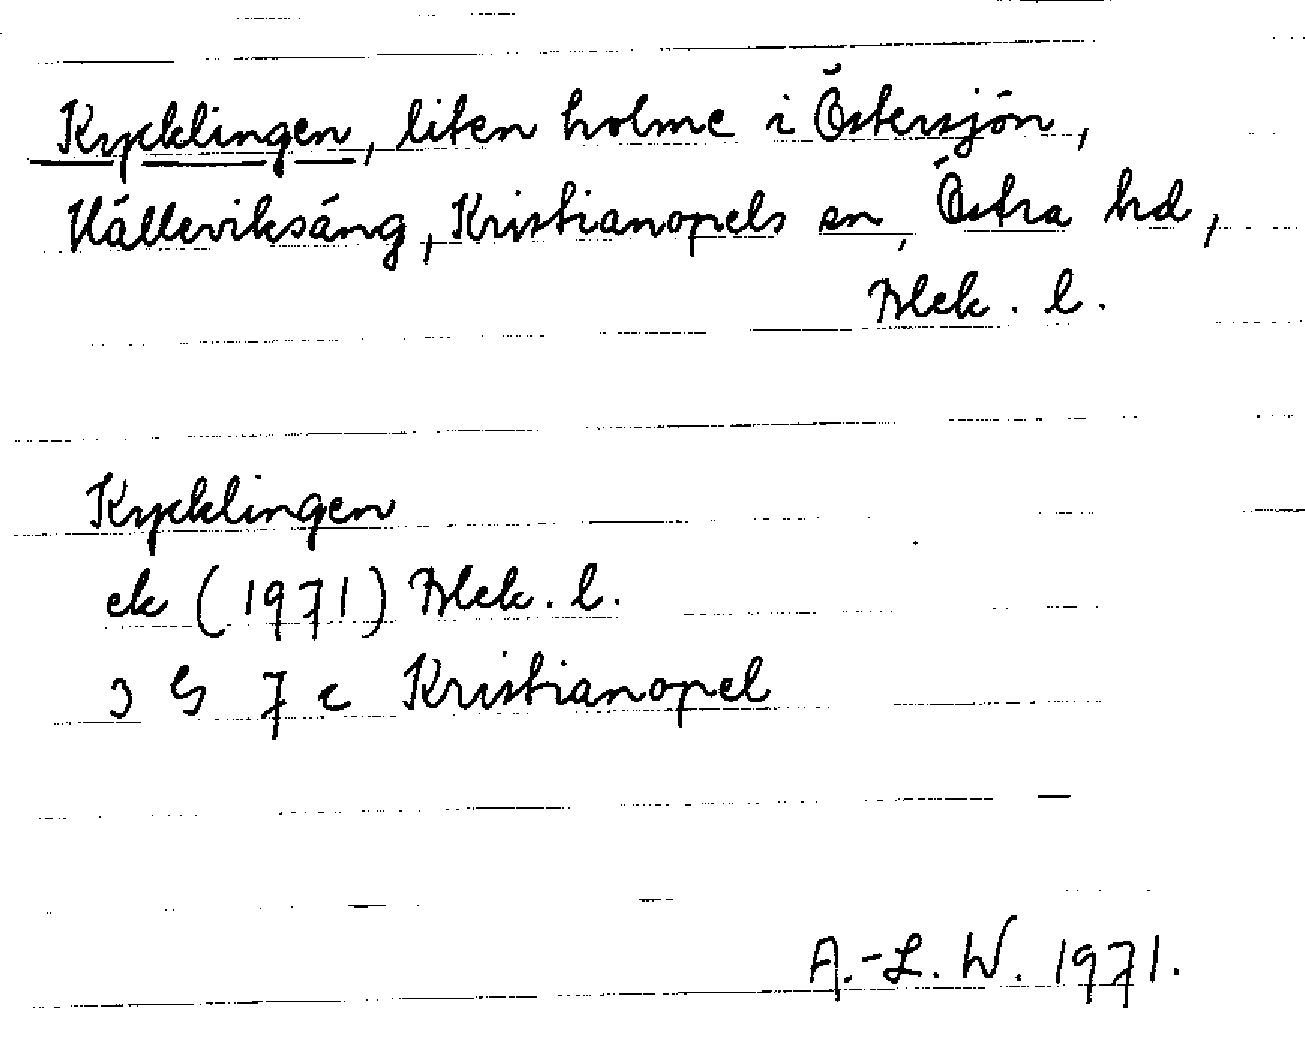 Kycklingen, liten holme i Östersjön,
Hälleviksäng, Kristianopels sn, Östra hd,
Blek. l.
Kycklingen
ek (1971) Blek. l.
3 G 7 c Kristianopel
A.-L. W. 1971.